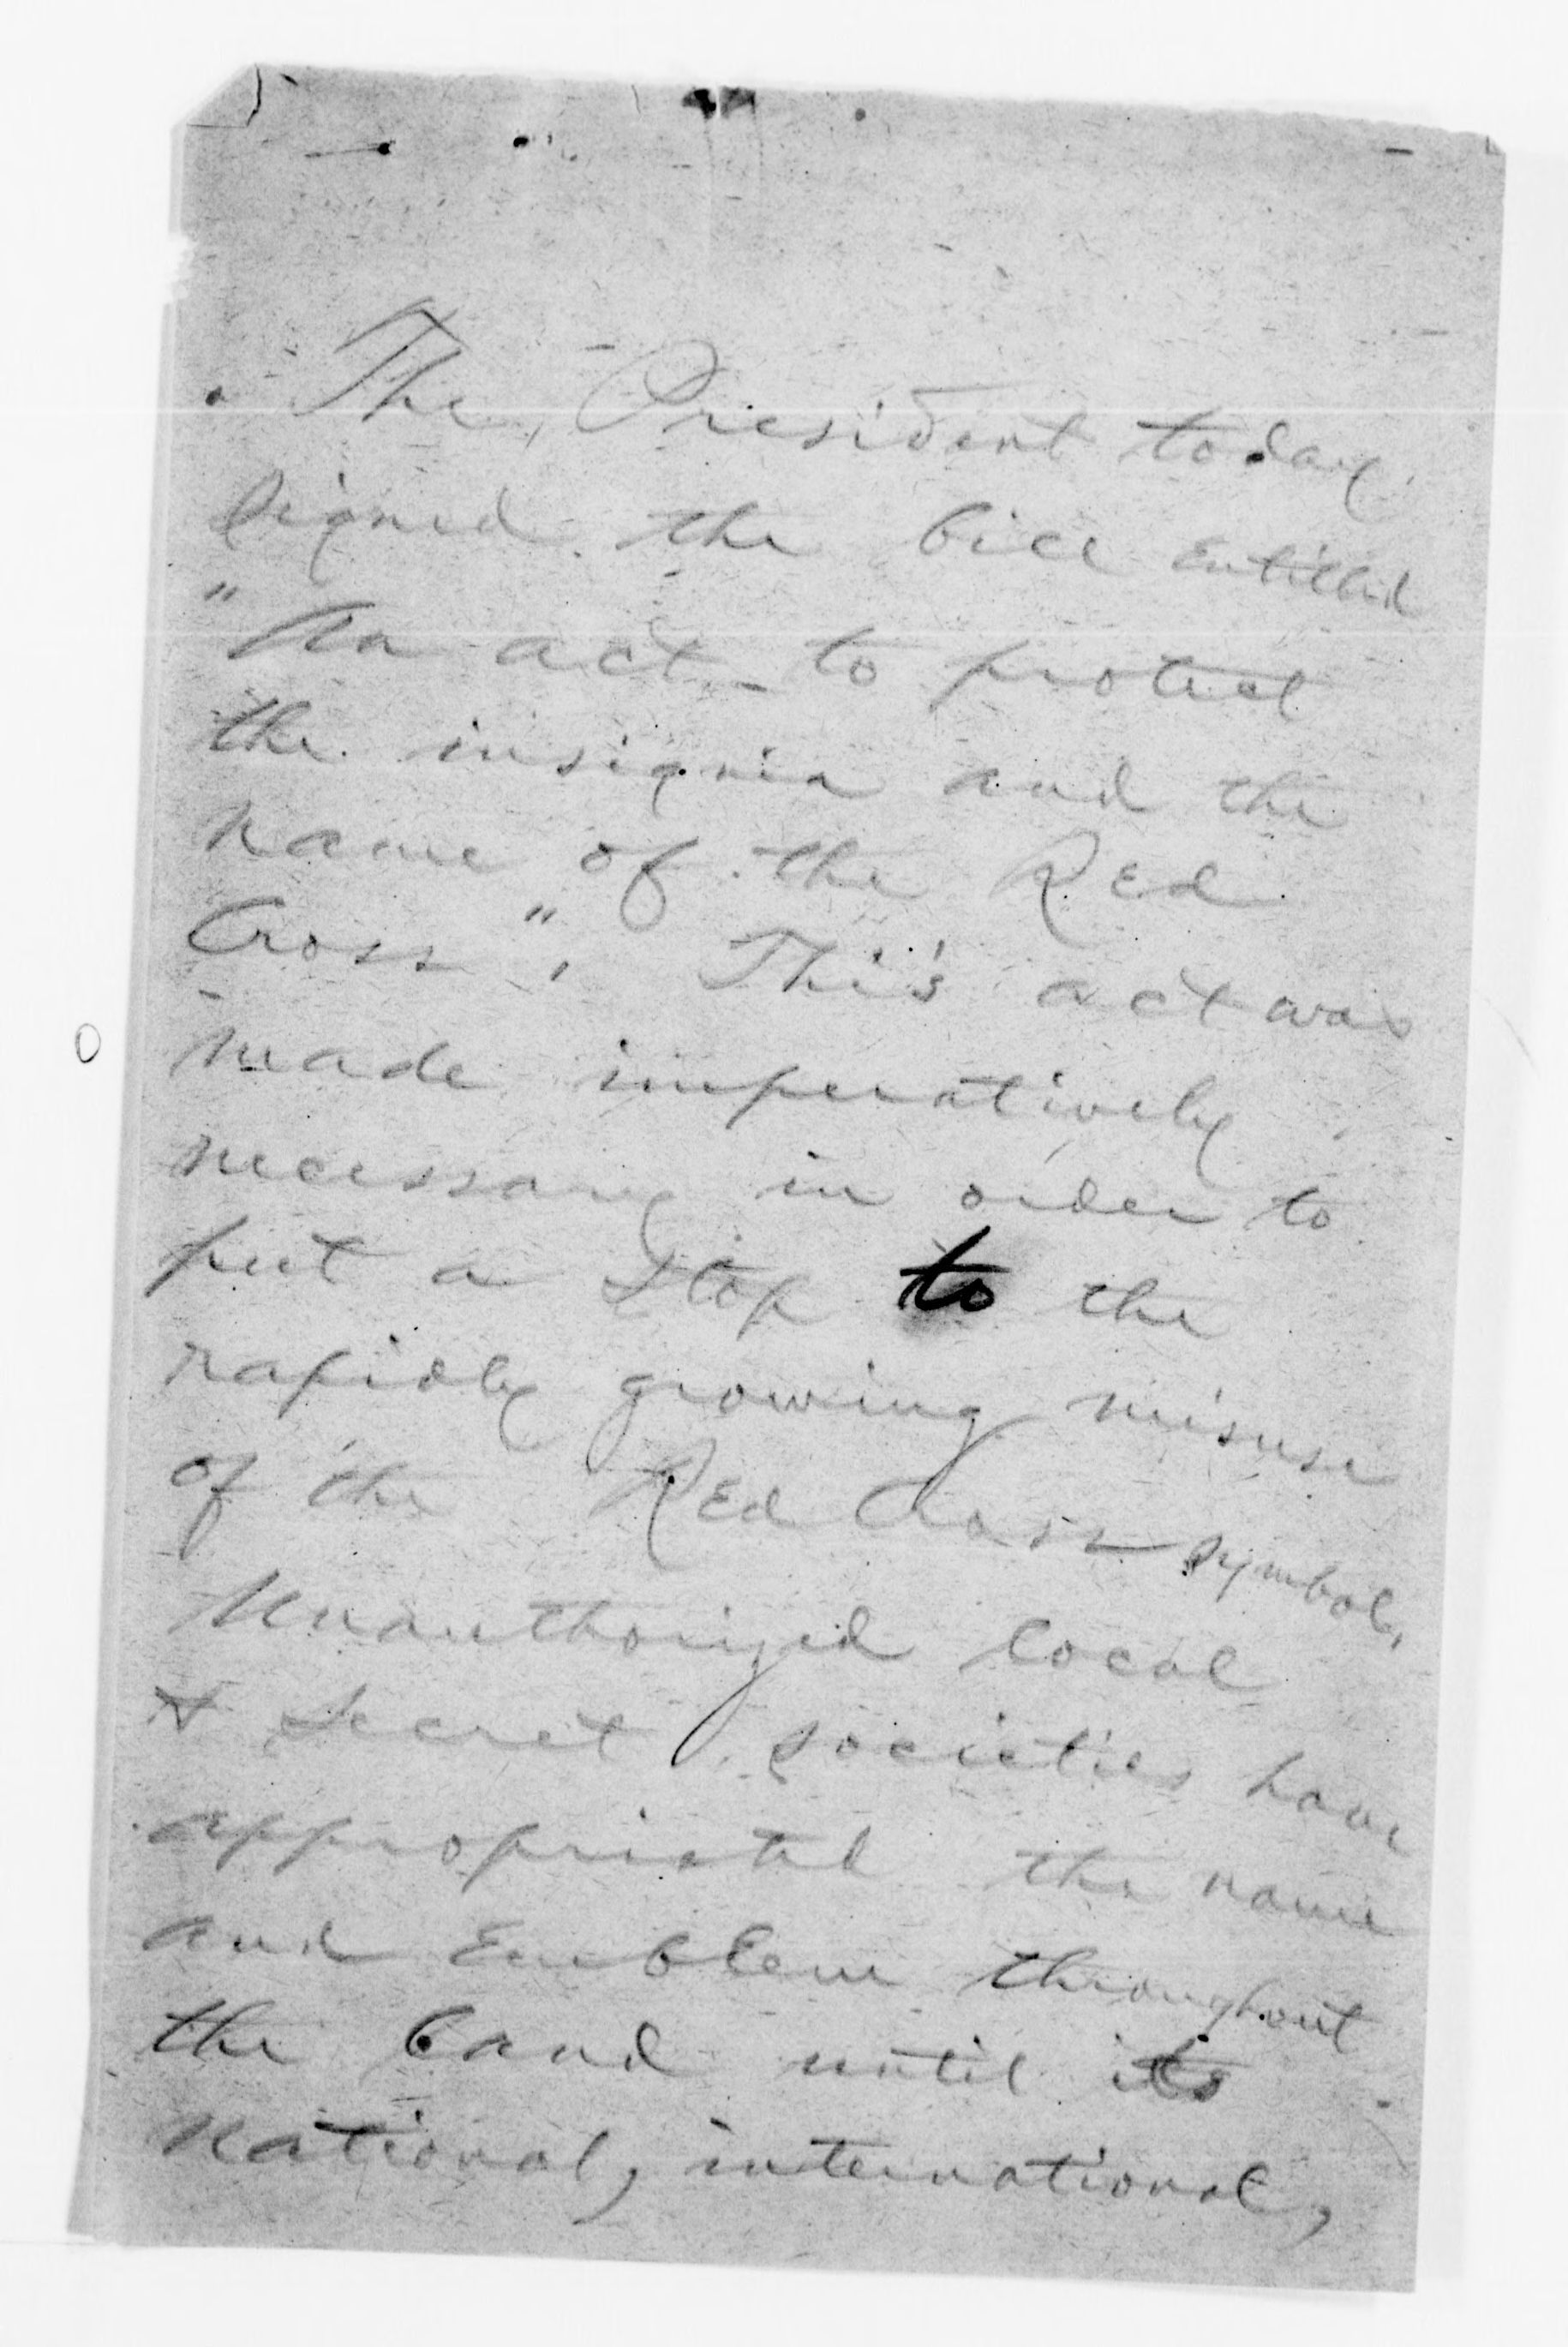 The President today
signed the bill entitled
"An act to protect
the insignia and the
name of the Red
Cross", This act was
made imperatively
necessary in order to
put a stop to the
rapidly growing misuse
of the Red Cross symbol,
Unauthorized local
& secret societies have
appropriated the name
and Emblem throughout
the land until its
national, international,